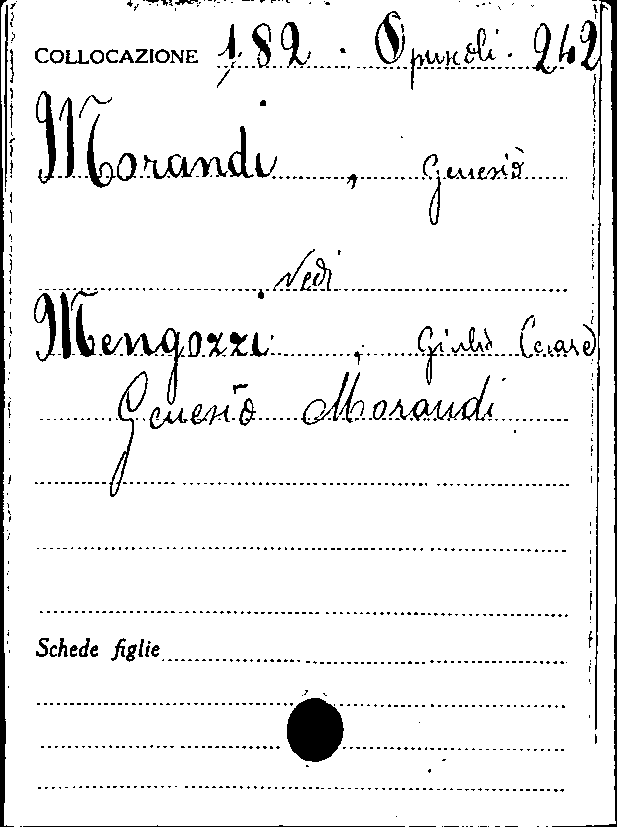 COLLOCAZIONE 182 . Opuscoli . 242
Morandi , Genesio
Vedi
Mengozzi , Giulio Cesare
Genesio Morandi
Schede figlie